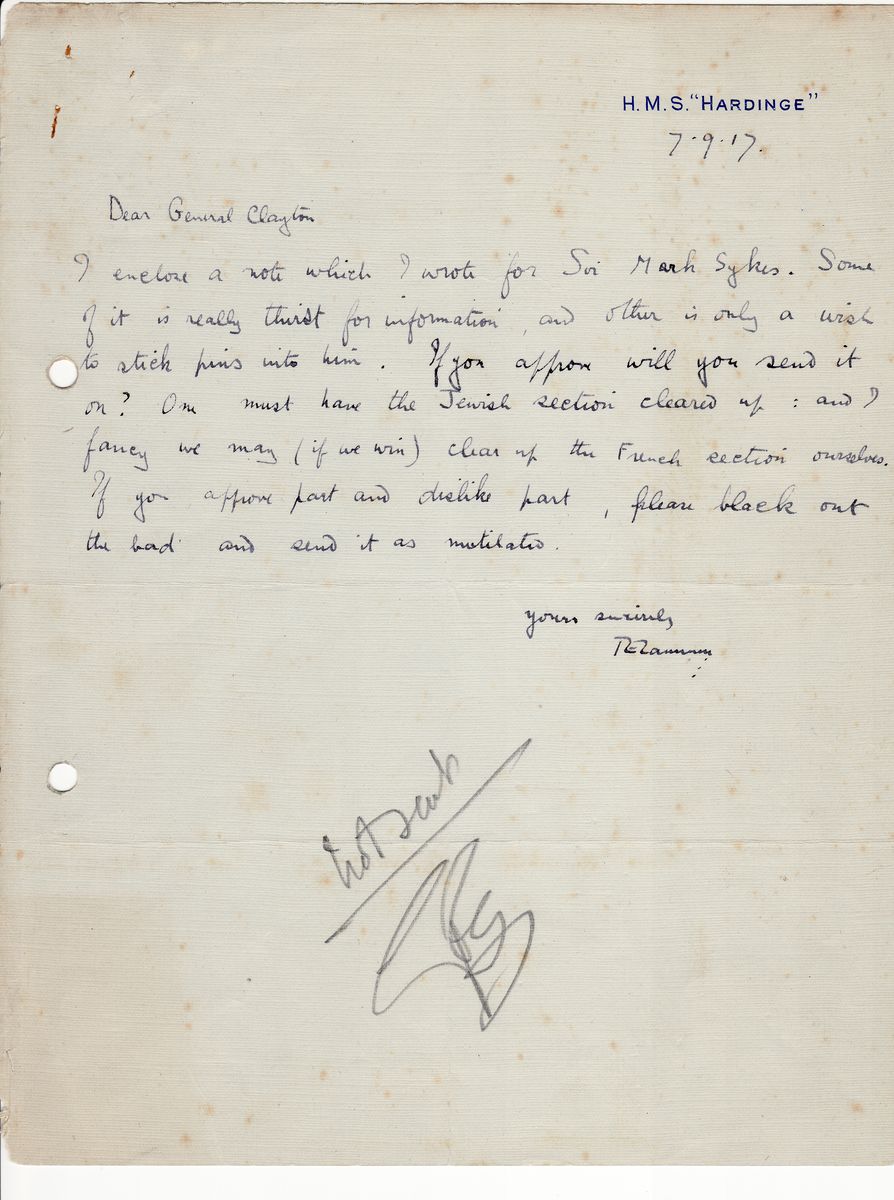 H.M.S. "HARDINGE"
7.9.17.
Dear General Clayton
I enclose a note which I wrote for Sir Mark Sykes. Some
of it is really thirst for information, and other is only a wish
to stick pins into him. If you approve will you send it
on? One must have the Jewish section cleared up: and I
fancy we may (if we win) clear up the French section ourselves.
If you approve part and dislike part, please black out
the bad and send it as mutilated.
Yours sincerely
TELawrence
Not sent